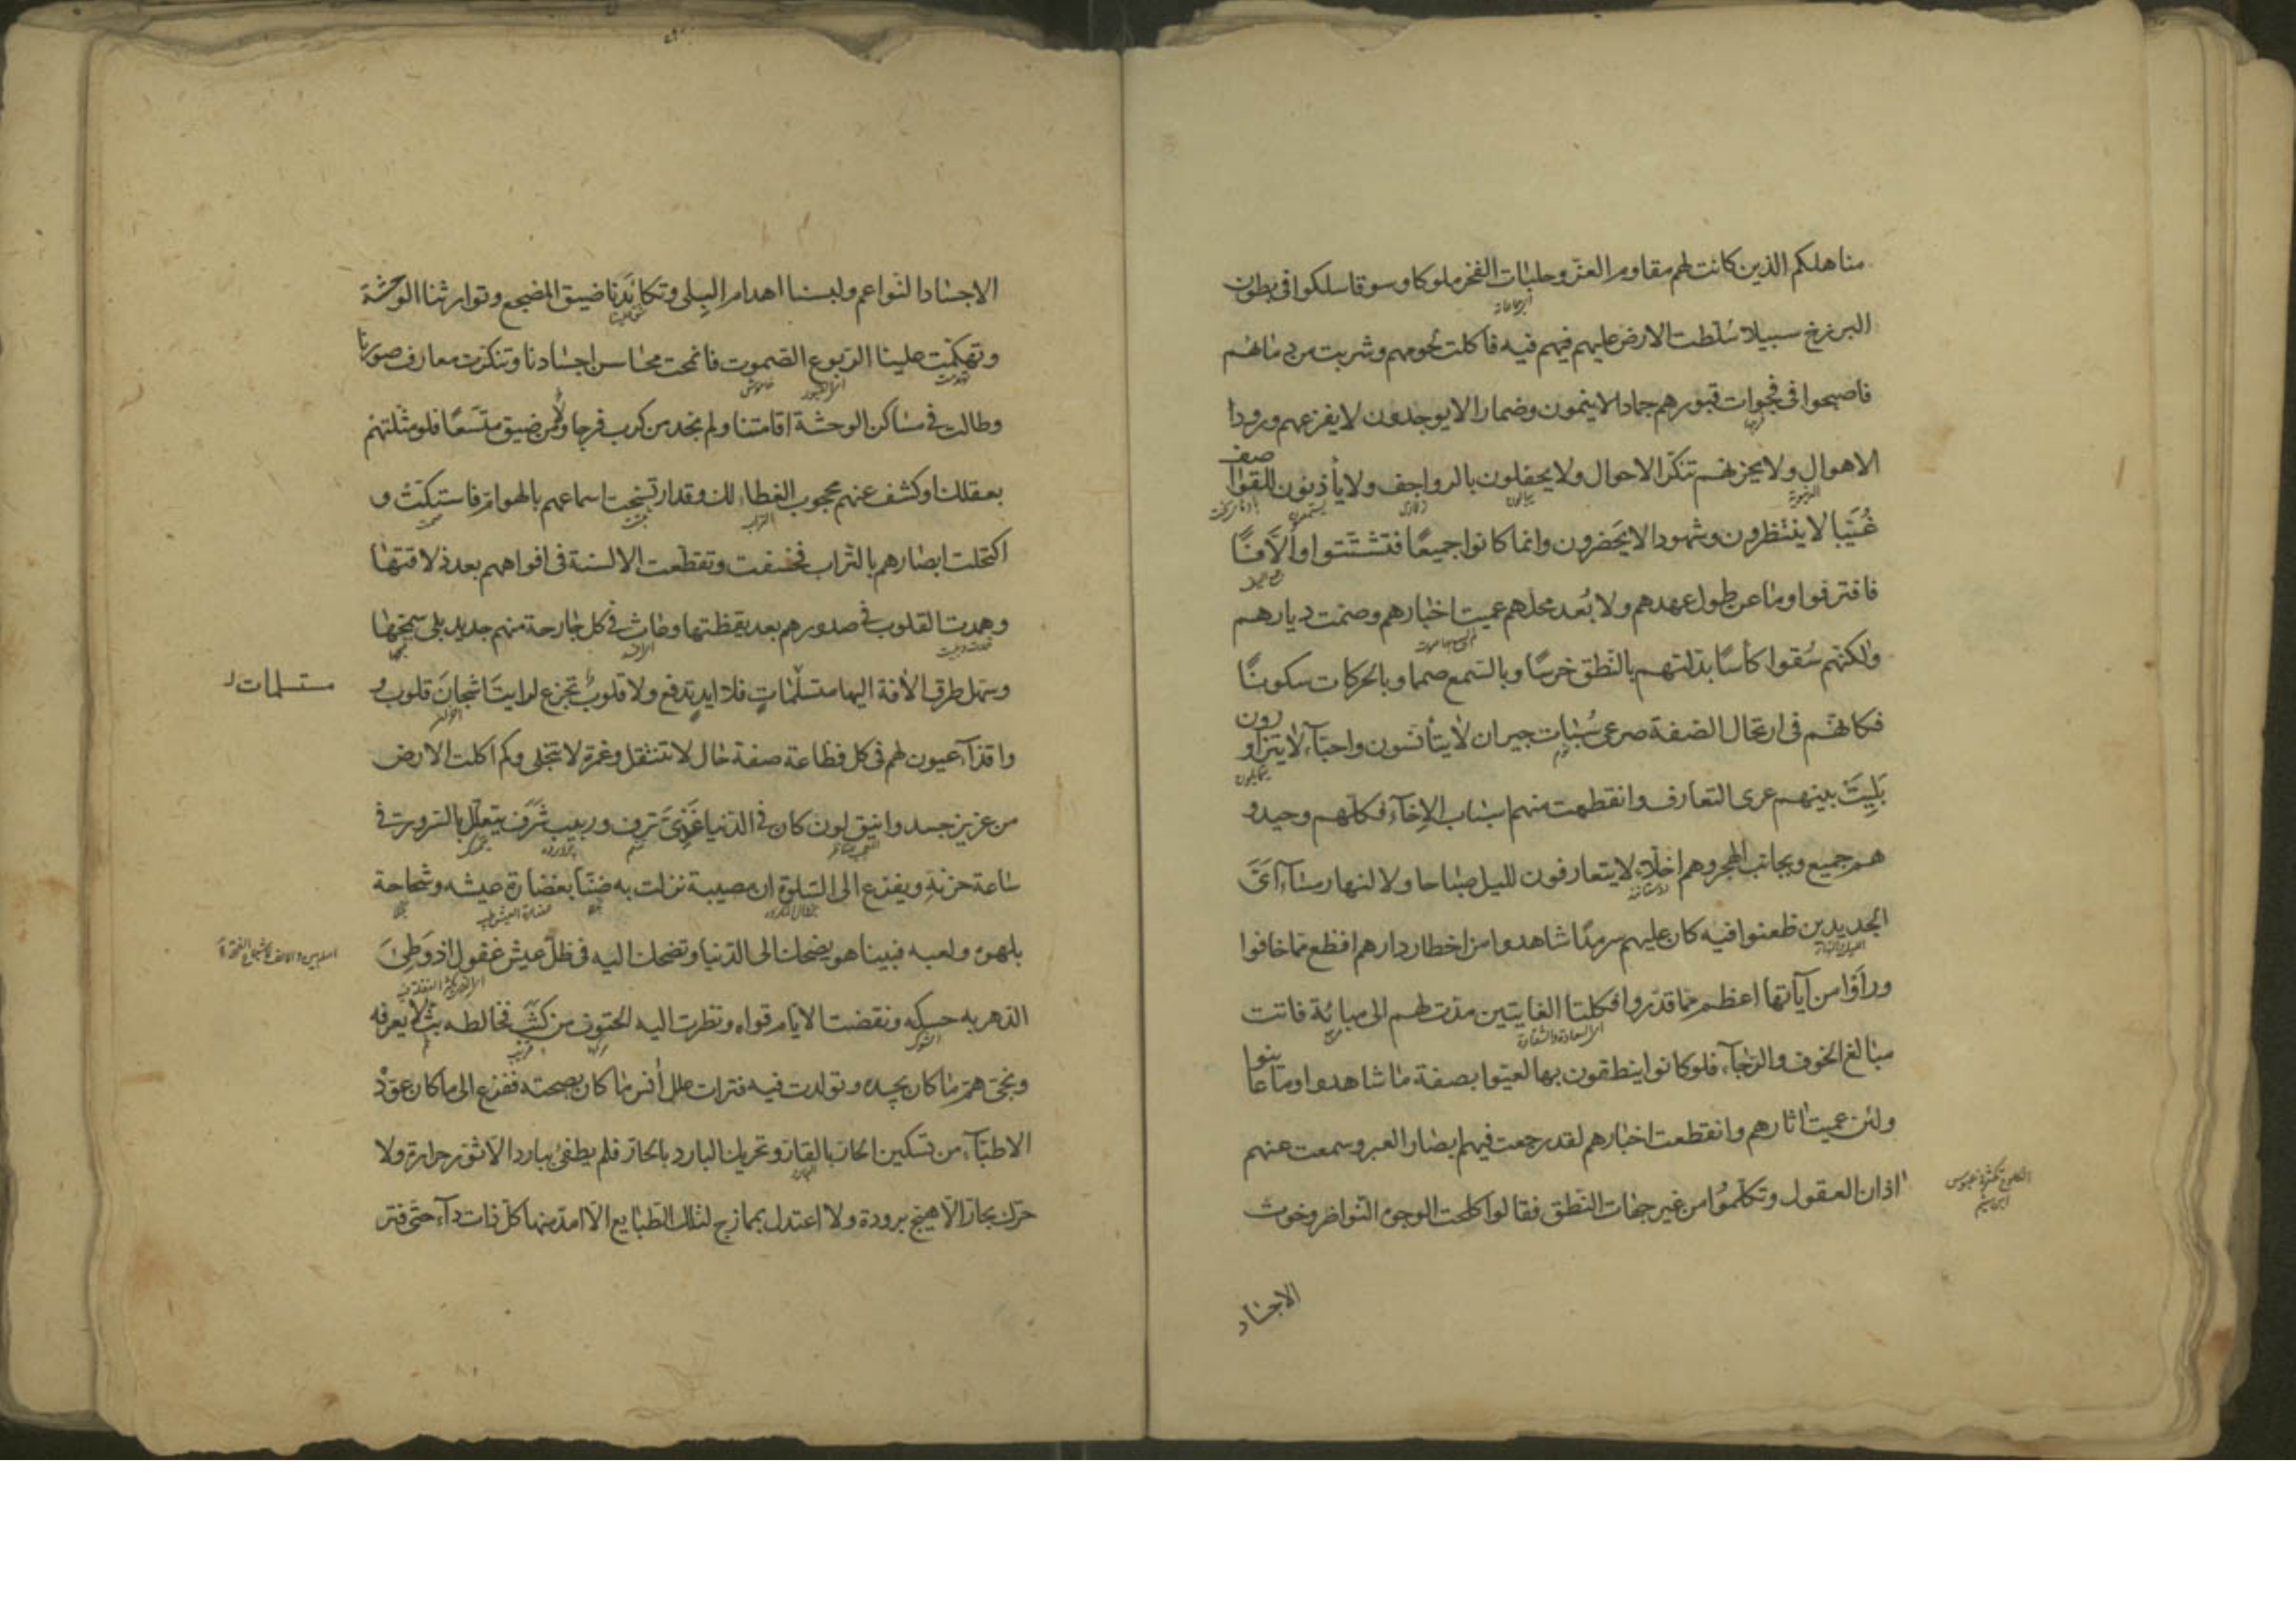 مناهلكم الذين كانت لهم مقاوم العز وحلبات الفخر ملوكا وسوقا سلكوا فى بطون
البرزخ سبيلا سُلّطت الارض عليهم فيه فاكلت لحومهم وشربت من دمائهم
فاصبحوا فى فجوات قبورهم جمادا لا ينمون وضمارا لا يوجدون لا يفزعهم ورود
الاهوال ولا يحزنهم تنكّر الاحوال ولا يحفلون بالرواجف ولا يأذنون للقواصف
غُيّبا لا ينتظرون وشهودا لا يحضرون وانما كانوا جميعًا فتشتّتوا وأُلّافًا
فافترقوا وما عن طول عهدهم ولا بُعد محلهم عميت اخبارهم وصمّت ديارهم
ولكنهم سُقوا كأسًا بدّلتهم بالنّطق خرسًا وبالسّمع صمما وبالحركات سكونًا
فكانّهم فى ارتجال الصّفة صرعى سُبات جيران لا يتأنسون واحبّآء لا يتزاورون
بَلِيَت بينهم عرى التعارف وانقطعت منهم اسباب الاِخآء فكلّهم وحيد و
هم جميع وبجانب الهجر وهم اخلّاء لا يتعارفون لليل صباحا ولا لنهار مسآء اىّ
الجديدين ظعنوا فيه كان عليهم سرمدًا شاهدوا من اخطار دارهم افظع مما خافوا
وراَوا من آياتها اعظم ممّا قدّروا فكلتا الغايتين مدّت لهم الى مباءة فاتت
مبالغ الخوف والرّجآء فلو كانوا ينطقون بها لعيّوا بصفة ما شاهدوا وما عاينوا
ولئن عميت اثارهم وانقطعت اخبارهم لقد رجعت فيهم ابصار العبر وسمعت عنهم
اذان العقول وتكلّموا من غير جهات النّطق فقالوا كلحت الوجوه النّواضر وخوت
الاجساد
الاجساد النّواعم ولبسنا اهدام البِلى وتكاءَدنا ضيق المضجع وتوارثنا الوحشة
وتهكّمت علينا الرّبوع الصّموت فانمحت محاسن اجسادنا وتنكّرت معارف صورنا
وطالت فى مساكن الوحشة اقامتنا ولم نجد من كرب فرجا ولا من ضيق متّسعًا فلو مثّلتهم
بعقلك او كشف عنهم محجوب الغطاء لك وقد ارتسخت اسماعهم بالهوامّ فاستكّت و
اكتحلت ابصارهم بالتّراب فخسفت وتقطّعت الالسنة فى افواههم بعد ذلاقتها
وهمدت القلوب فى صدورهم بعد يقظتها وعاث فى كل جارحة منهم جديد بلى سمّجها
وسهّل طرق الأفة اليها مستسلمات فلا ايدٍ تدفع ولا قلوب تجزع لرايت اشجانَ قلوب و
مستسلمات
واقذآء عيون لهم فى كل فظاعة صفة حال لا تنتقل وغمرة لا تنجلى وكم اكلت الارض
من عزيز جسد وانيق لون كان فى الدّنيا غذىّ ترف وربيب شَرَف يتعلّل بالسّرور فى
ساعة حزنه ويفزع الى السّلوة ان مصيبة نزلت به ضنّا بغضارة عيشه وشحاحة
بلهوه ولعبه فبينا هو يضحك الى الدّنيا وتضحك اليه فى ظلّ عيش غفول اذ وَطِئَ
الدّهر به حسكه ونقضت الأيام قواه ونظرت اليه الحتوف من كثَب فخالطه بثّ لا يعرفه
ونجىّ همّ ما كان يجده وتولّدت فيه فترات علل آنس ما كان بصحته ففزع الى ما كان عوّده
الاطبّآء من تسكين الحارّ بالقارّ وتحريك البارد بالحارّ فلم يطفئ ببارد الّا ثوّر حرارة ولا
حرّك بحارّ الّا هيّج برودة ولا اعتدل بممازج لتلك الطّبايع الّا امدّ منها كلّ ذات دآء حتّى فتر